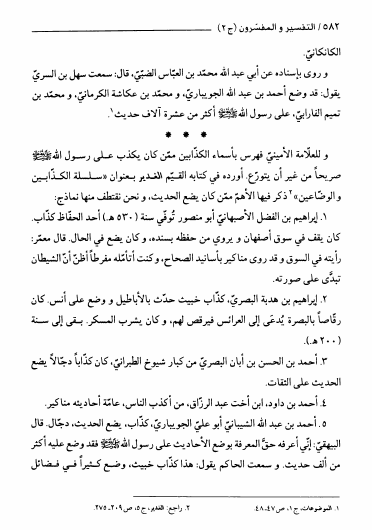 ٥٨٢/ التفسير و المفسّرون (ج ٢)
الكانكانيّ.
و روى بإسناده عن أبي عبد الله محمّد بن العبّاس الضبّيّ، قال: سمعت سهل بن السريّ
يقول: قد وضع أحمد بن عبد الله الجويباريّ، و محمّد بن عكاشة الكرمانيّ، و محمّد بن
تميم الفارابيّ، على رسول اللهﷺ أكثر من عشرة آلاف حديث.١
* * *
و للعلّامة الأمينيّ فهرس بأسماء الكذّابين ممّن كان يكذب على رسول اللهﷺ
صريحاً من غير أن يتورّع. أورده في كتابه القيّم الغدير بعنوان «سلسلة الكذّابين
و الوضّاعين»٢ ذكر فيها الأهمّ ممّن كان يضع الحديث، و نحن نقتطف منها نماذج:
١. إبراهيم بن الفضل الأصبهانيّ أبو منصور تُوفّي سنة (٥٣٠ هـ) أحد الحفّاظ كذّاب.
كان يقف في سوق أصفهان و يروي من حفظه بسنده، و كان يضع في الحال. قال معمّر:
رأيته في السوق و قد روى مناكير بأسانيد الصحاح، و كنت أتأمّله مفرطاً أظنّ أنّ الشيطان
تبدّى على صورته.
٢. إبراهيم بن هدبة البصريّ، كذّاب خبيث حدّث بالأباطيل و وضع على أنس. كان
رقّاصاً بالبصرة يُدعَى إلى العرائس فيرقص لهم، و كان يشرب المسكر. بقى إلى سنة
(٢٠٠ هـ).
٣. أحمد بن الحسن بن أبان البصريّ من كبار شيوخ الطبرانيّ، كان كذّاباً دجّالاً يضع
الحديث على الثقات.
٤. أحمد بن داود، ابن أخت عبد الرزّاق، من أكذب الناس، عامّة أحاديثه مناكير.
٥. أحمد بن عبد الله الشيبانيّ أبو عليّ الجويباريّ، كذّاب، يضع الحديث، دجّال. قال
البيهقيّ: إنّي أعرفه حقّ المعرفة بوضع الأحاديث على رسول اللهﷺ فقد وضع عليه أكثر
من ألف حديث. و سمعت الحاكم يقول: هذا كذّاب خبيث، وضع كثيراً في فضائل
١. الموضوعات، ج ١، ص ٤٧ـ٤٨.
٢. راجع: الغدير، ج ٥، ص ٢٠٩ـ٢٧٥.